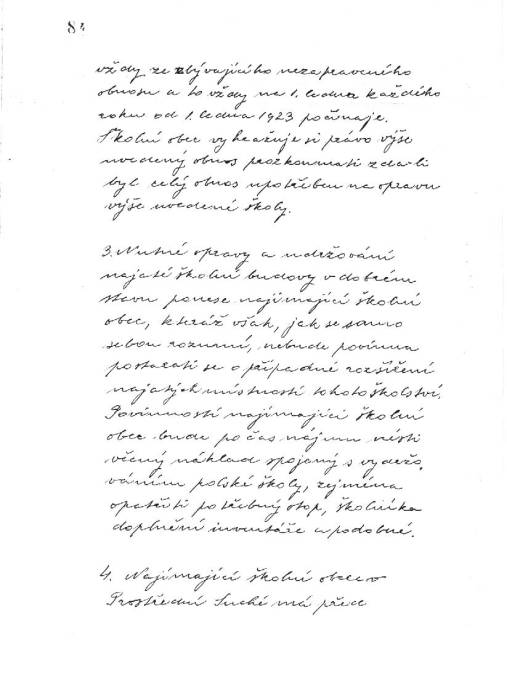 84
vždy ze zbývajícího nezapraveného
obnosu a to vždy na 1. lednu každého
roku od 1. ledna 1923 počínaje.
Školní obec vyhražuje si právo výše
uvedený obnos prozkoumati zda-li
byl celý obnos upotřeben na opravu
výše uvedené školy.
3. Nutné opravy a udržování
najaté školní budovy v dobrém
stavu ponese najímající školní
obec, kteráž však, jak se samo
sebou rozumí, nebude povinna
postarati se o případné rozšíření
najatých místností tohoto školství.
Povinností najímající školní
obce bude po čas nájmu nésti
věcný náklad spojený s vydržo-
váním polské školy, zejména
opatřiti potřebný otop, školníka
doplnění inventáře a podobné.
4. Najímající školní obec v
Prostřední Suché má před